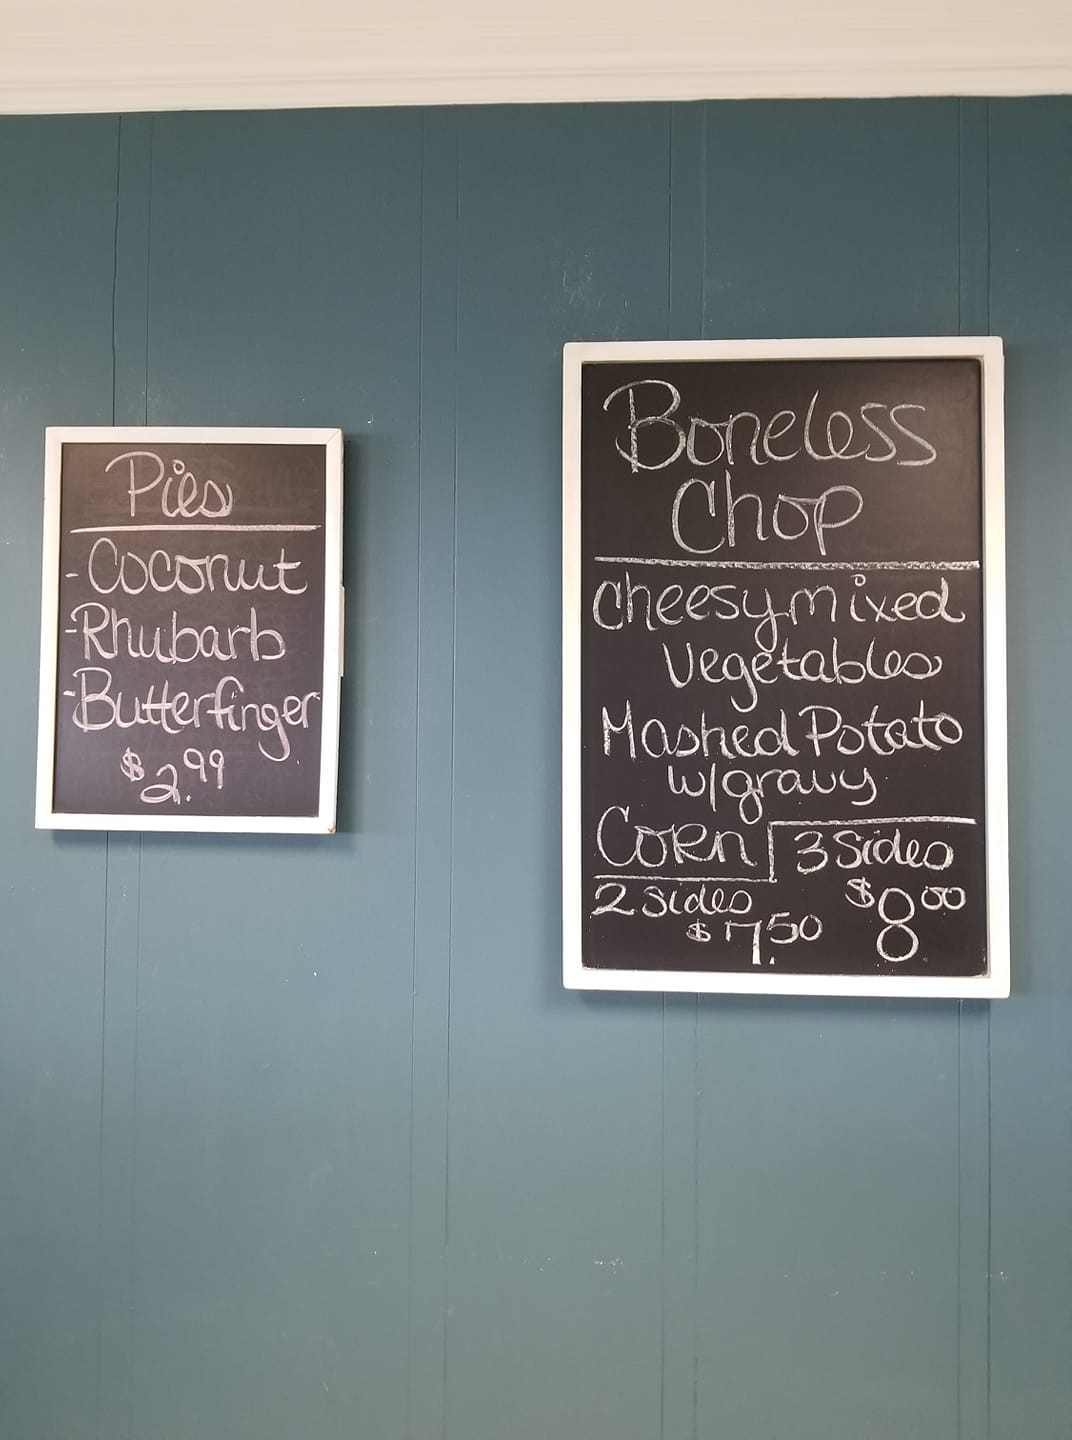 Pies
- Coconut
- Rhubarb
- Butterfinger
$2.99
Boneless
Chop
Cheesy mixed
Vegetables
Mashed Potato
w/gravy
Corn
2 Sides
$7.50
3 Sides
$8.00